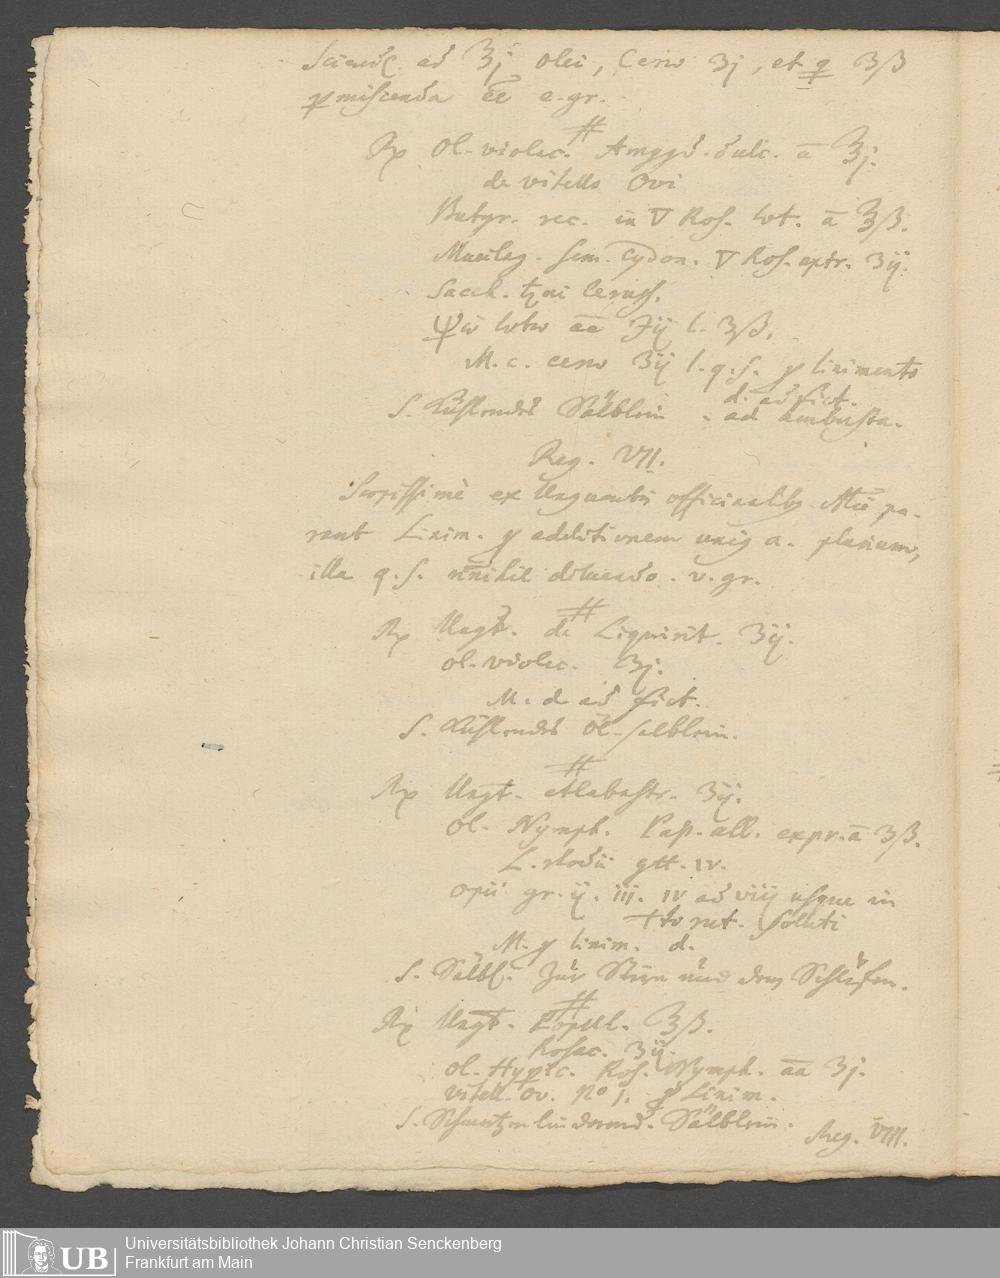 Sciend. ad ℥j olei, Ceræ ʒj, et q ʒß
p miscenda ee e. gr.
Rp Ol. violac. Amygd. dulc. ā ℥j.
de vitello Ovi
Butyr. rec. in ▽ Ros. lot. ā ℥ß.
Mucilag. Sem. Cydon. ▽ Ros. extr. ʒij.
Sacch. ♄ni Ceruss.
lotæ āā ℈ij l. ʒß.
M. c. ceræ ʒij l. q. s. linimento
d. ad fict.
S. Kühlendes Sälblein ad ambusta.
Reg. VII.
Sæpissimè ex Unguentis officinalibus pa-
rant Linim. p additionem a.
illa q. s. diluendo. v. gr.
Rp Ungt. de Liquirit. ʒij.
Ol. violac. ʒj.
M. d. ad fict.
S. Kühlendes Öl-sälblein.
Rp Ungt. Alabastr. ʒij.
Ol. Nymph. Pap. alb. expr. ā ʒß.
L. rhodii gtt. IV.
Opii gr. ij. iij. IV ad viij usque in
soluti
M. p linim. d.
S. Sälbl. Zur Stirn und den Schläfen.
Rp Ungt. Popul. ℥ß.
Rosac. ʒij.
Ol. Hyperic. Ros. Nymph. āā ʒj.
Vitell. Ov. No j. p Linim.
S. Schmertzen linderend. Sälblein.
Reg. VIII.
UB Universitätsbibliothek Johann Christian Senckenberg
Frankfurt am Main